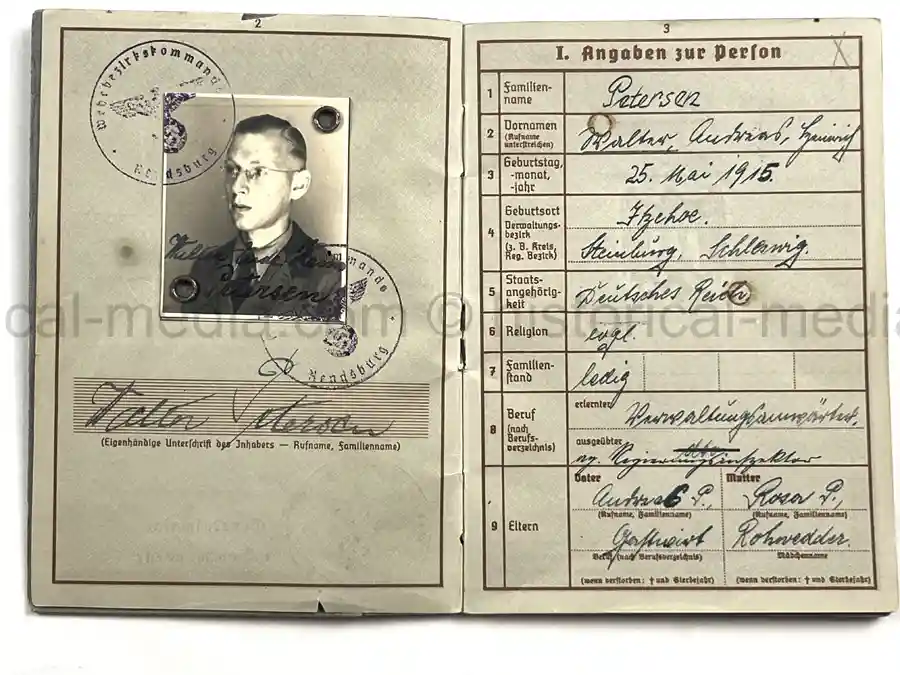 2
Wehrbezirkskommando
Rendsburg
Petersen
Rendsburg
Walter Petersen
(Eigenhändige Unterschrift des Inhabers — Rufname, Familienname)
3
I. Angaben zur Person
1 Familien-
name
Petersen
2 Vornamen
(Rufname
unterstreichen)
Walter, Andreas, Heinrich
3 Geburtstag,
-monat,
-jahr
25. Mai 1915.
4 Geburtsort
Verwaltungs-
bezirk
(z. B. Kreis,
Reg. Bezirk)
Itzehoe.
Steinburg, Schleswig.
5 Staats-
angehörig-
keit
Deutsches Reich
6 Religion
evgl.
7 Familien-
stand
ledig
8 Beruf
(nach
Berufs-
verzeichnis)
erlernter
Verwaltungsanwärter.
ausgeübter
Regierungsinspektor
9 Eltern
Vater
Mutter
Andreas P.,
Rosa P.,
(Rufname, Familienname)
(Rufname, Familienname)
Gastwirt
Rohwedder.
Beruf (nach Berufsverzeichnis)
Mädchenname
(wenn verstorben: † und Sterbejahr)
(wenn verstorben: † und Sterbejahr)
cal-media.com © historical-media